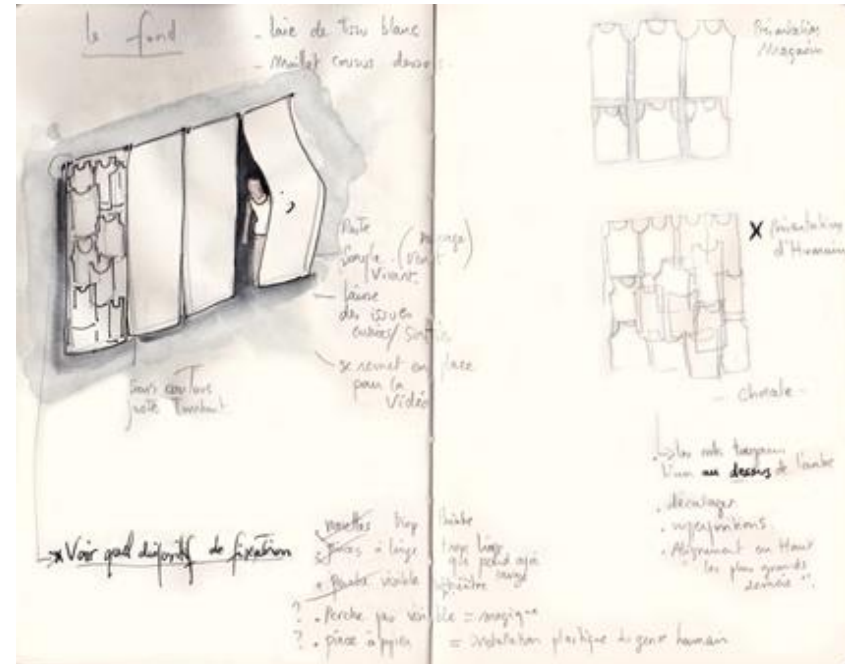 le fond
- laie de tissu blanc
- maillot cousus dessous.
Reste
Souple. (passage)
Vivant.
- laisse
des issues
entrées/Sorties
- se remet en place
pour la
Vidéo
Sans couture
juste Tombant
Voir quel dispositif de fixation
. trop
. pinces à linge trop linge
qui pend
. visible
? . Perche pas visible = magique
? . pince à papier = installation plastique du genre humain
Présentation
Magasin
X Présentation
d'Humain
- Chorale -
les uns toujours
l'un au dessus de l'autre
. décalages
. superpositions.
. Alignement en Haut
"les plus grands
derrière".